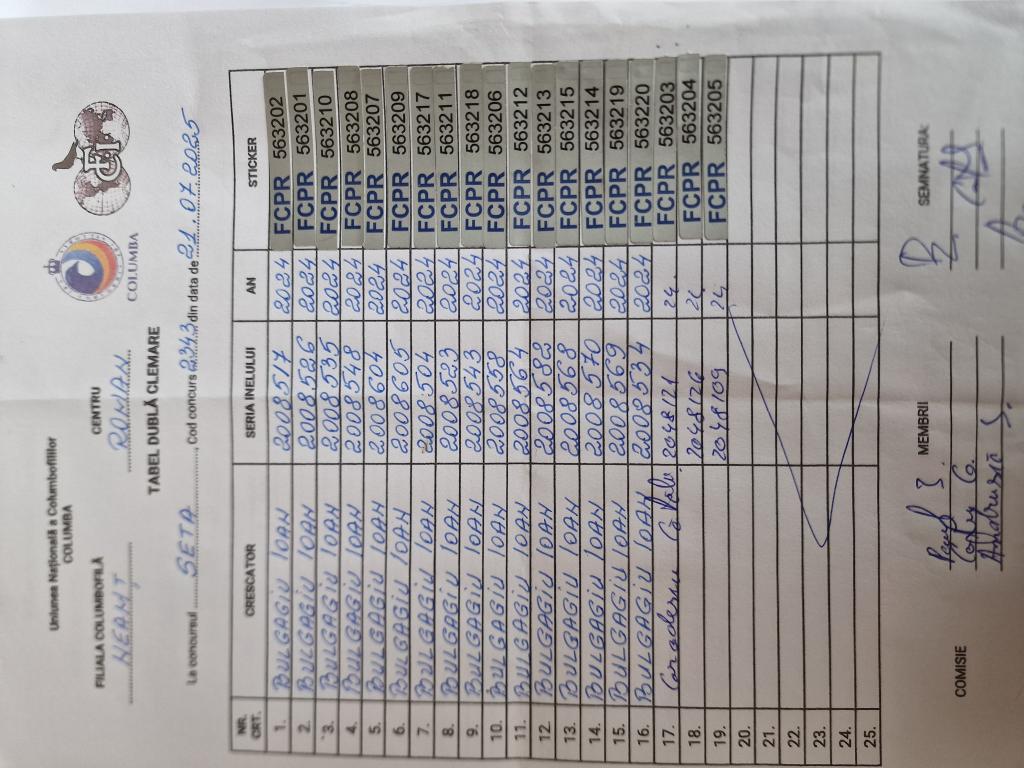 Uniunea Națională a Columbofililor
COLUMBA
FILIALA COLUMBOFILĂ CENTRU
NEAMȚ ROMAN
COLUMBA
TABEL DUBLĂ CLEMARE
La concursul SETA, Cod concurs 2343 din data de 21.07.2025
NR. CRT. CRESCATOR SERIA INELULUI AN STICKER
1. BULGAGIU IOAN 2008517 2024 FCPR 563202
2. BULGAGIU IOAN 2008526 2024 FCPR 563201
3. BULGAGIU IOAN 2008535 2024 FCPR 563210
4. BULGAGIU IOAN 2008548 2024 FCPR 563208
5. BULGAGIU IOAN 2008604 2024 FCPR 563207
6. BULGAGIU IOAN 2008605 2024 FCPR 563209
7. BULGAGIU IOAN 2008504 2024 FCPR 563217
8. BULGAGIU IOAN 2008523 2024 FCPR 563211
9. BULGAGIU IOAN 2008543 2024 FCPR 563218
10. BULGAGIU IOAN 2008558 2024 FCPR 563206
11. BULGAGIU IOAN 2008564 2024 FCPR 563212
12. BULGAGIU IOAN 2008583 2024 FCPR 563213
13. BULGAGIU IOAN 2008568 2024 FCPR 563215
14. BULGAGIU IOAN 2008570 2024 FCPR 563214
15. BULGAGIU IOAN 2008569 2024 FCPR 563219
16. BULGAGIU IOAN 2008534 2024 FCPR 563220
17. 2048121 24 FCPR 563203
18. 2048126 24 FCPR 563204
19. 2048109 24 FCPR 563205
20.
21.
22.
23.
24.
25.
COMISIE MEMBRII SEMNATURA: